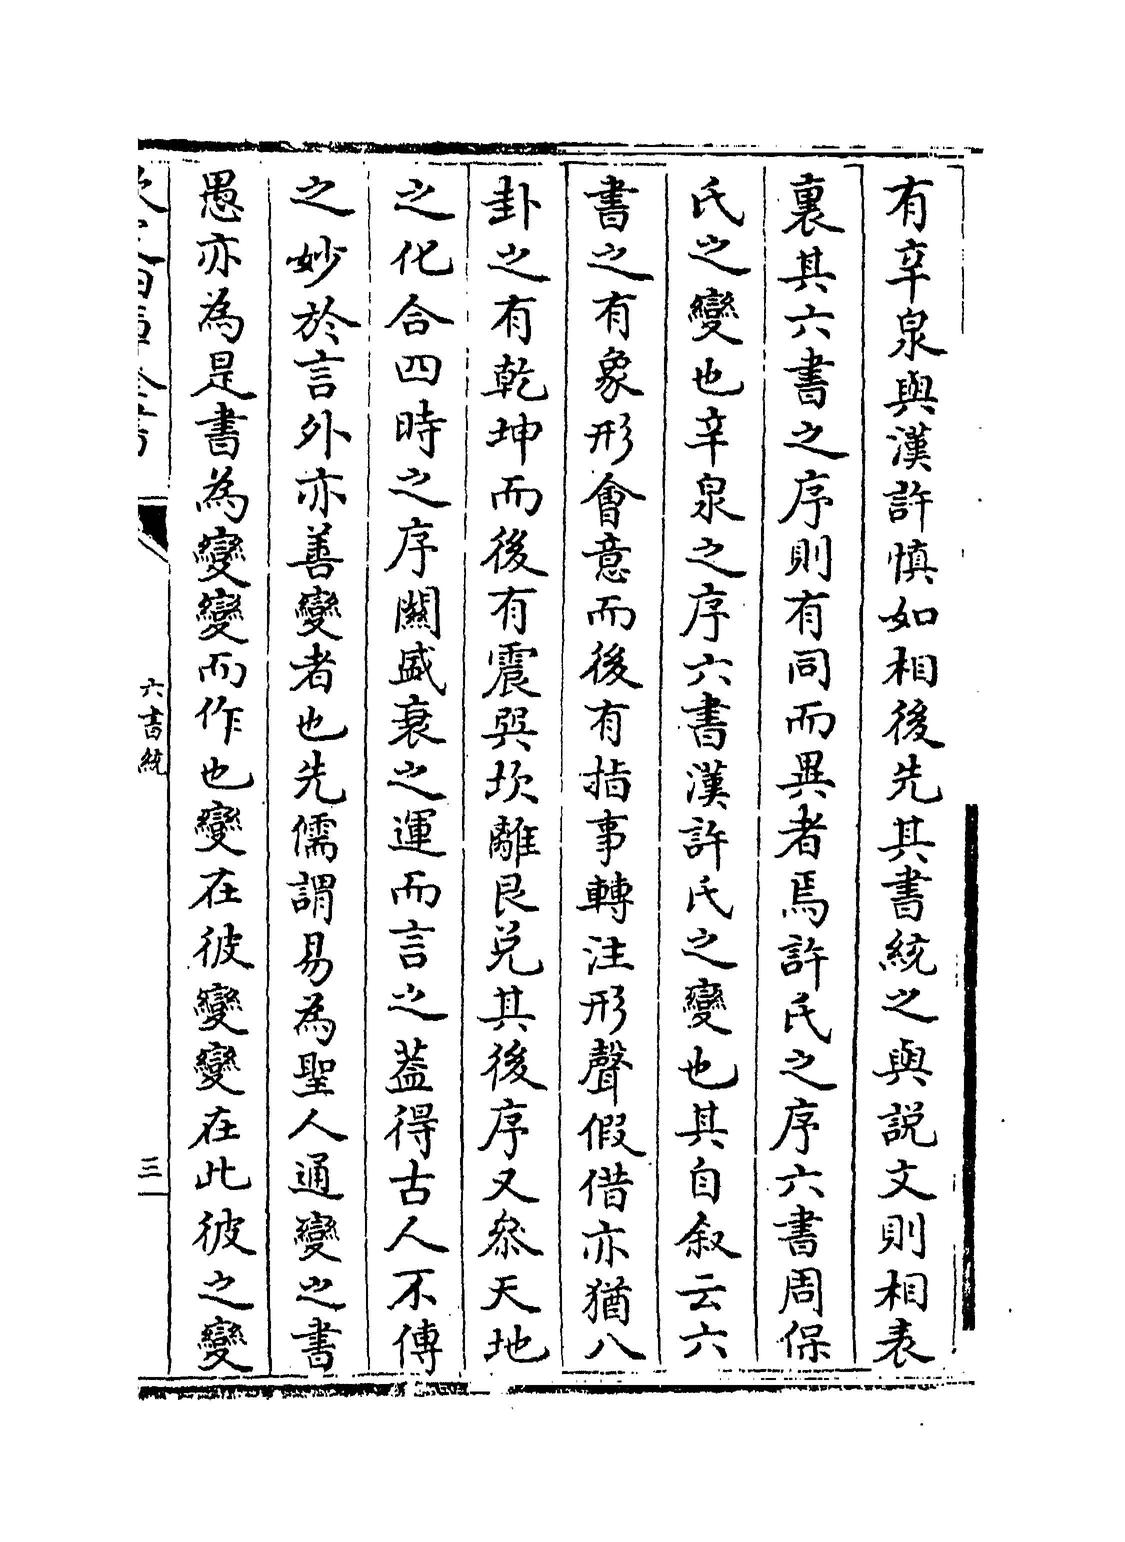 有辛泉與漢許慎如相後先其書統之與説文則相表
裏其六書之序則有同而異者焉許氏之序六書周保
氏之變也辛泉之序六書漢許氏之變也其自叙云六
書之有象形會意而後有指事轉注形聲假借亦猶八
卦之有乾坤而後有震巽坎離艮兑其後序又叅天地
之化合四時之序闗盛衰之運而言之葢得古人不傳
之妙於言外亦善變者也先儒謂易為聖人通變之書
愚亦為是書為變變而作也變在彼變變在此彼之變
六書統
三